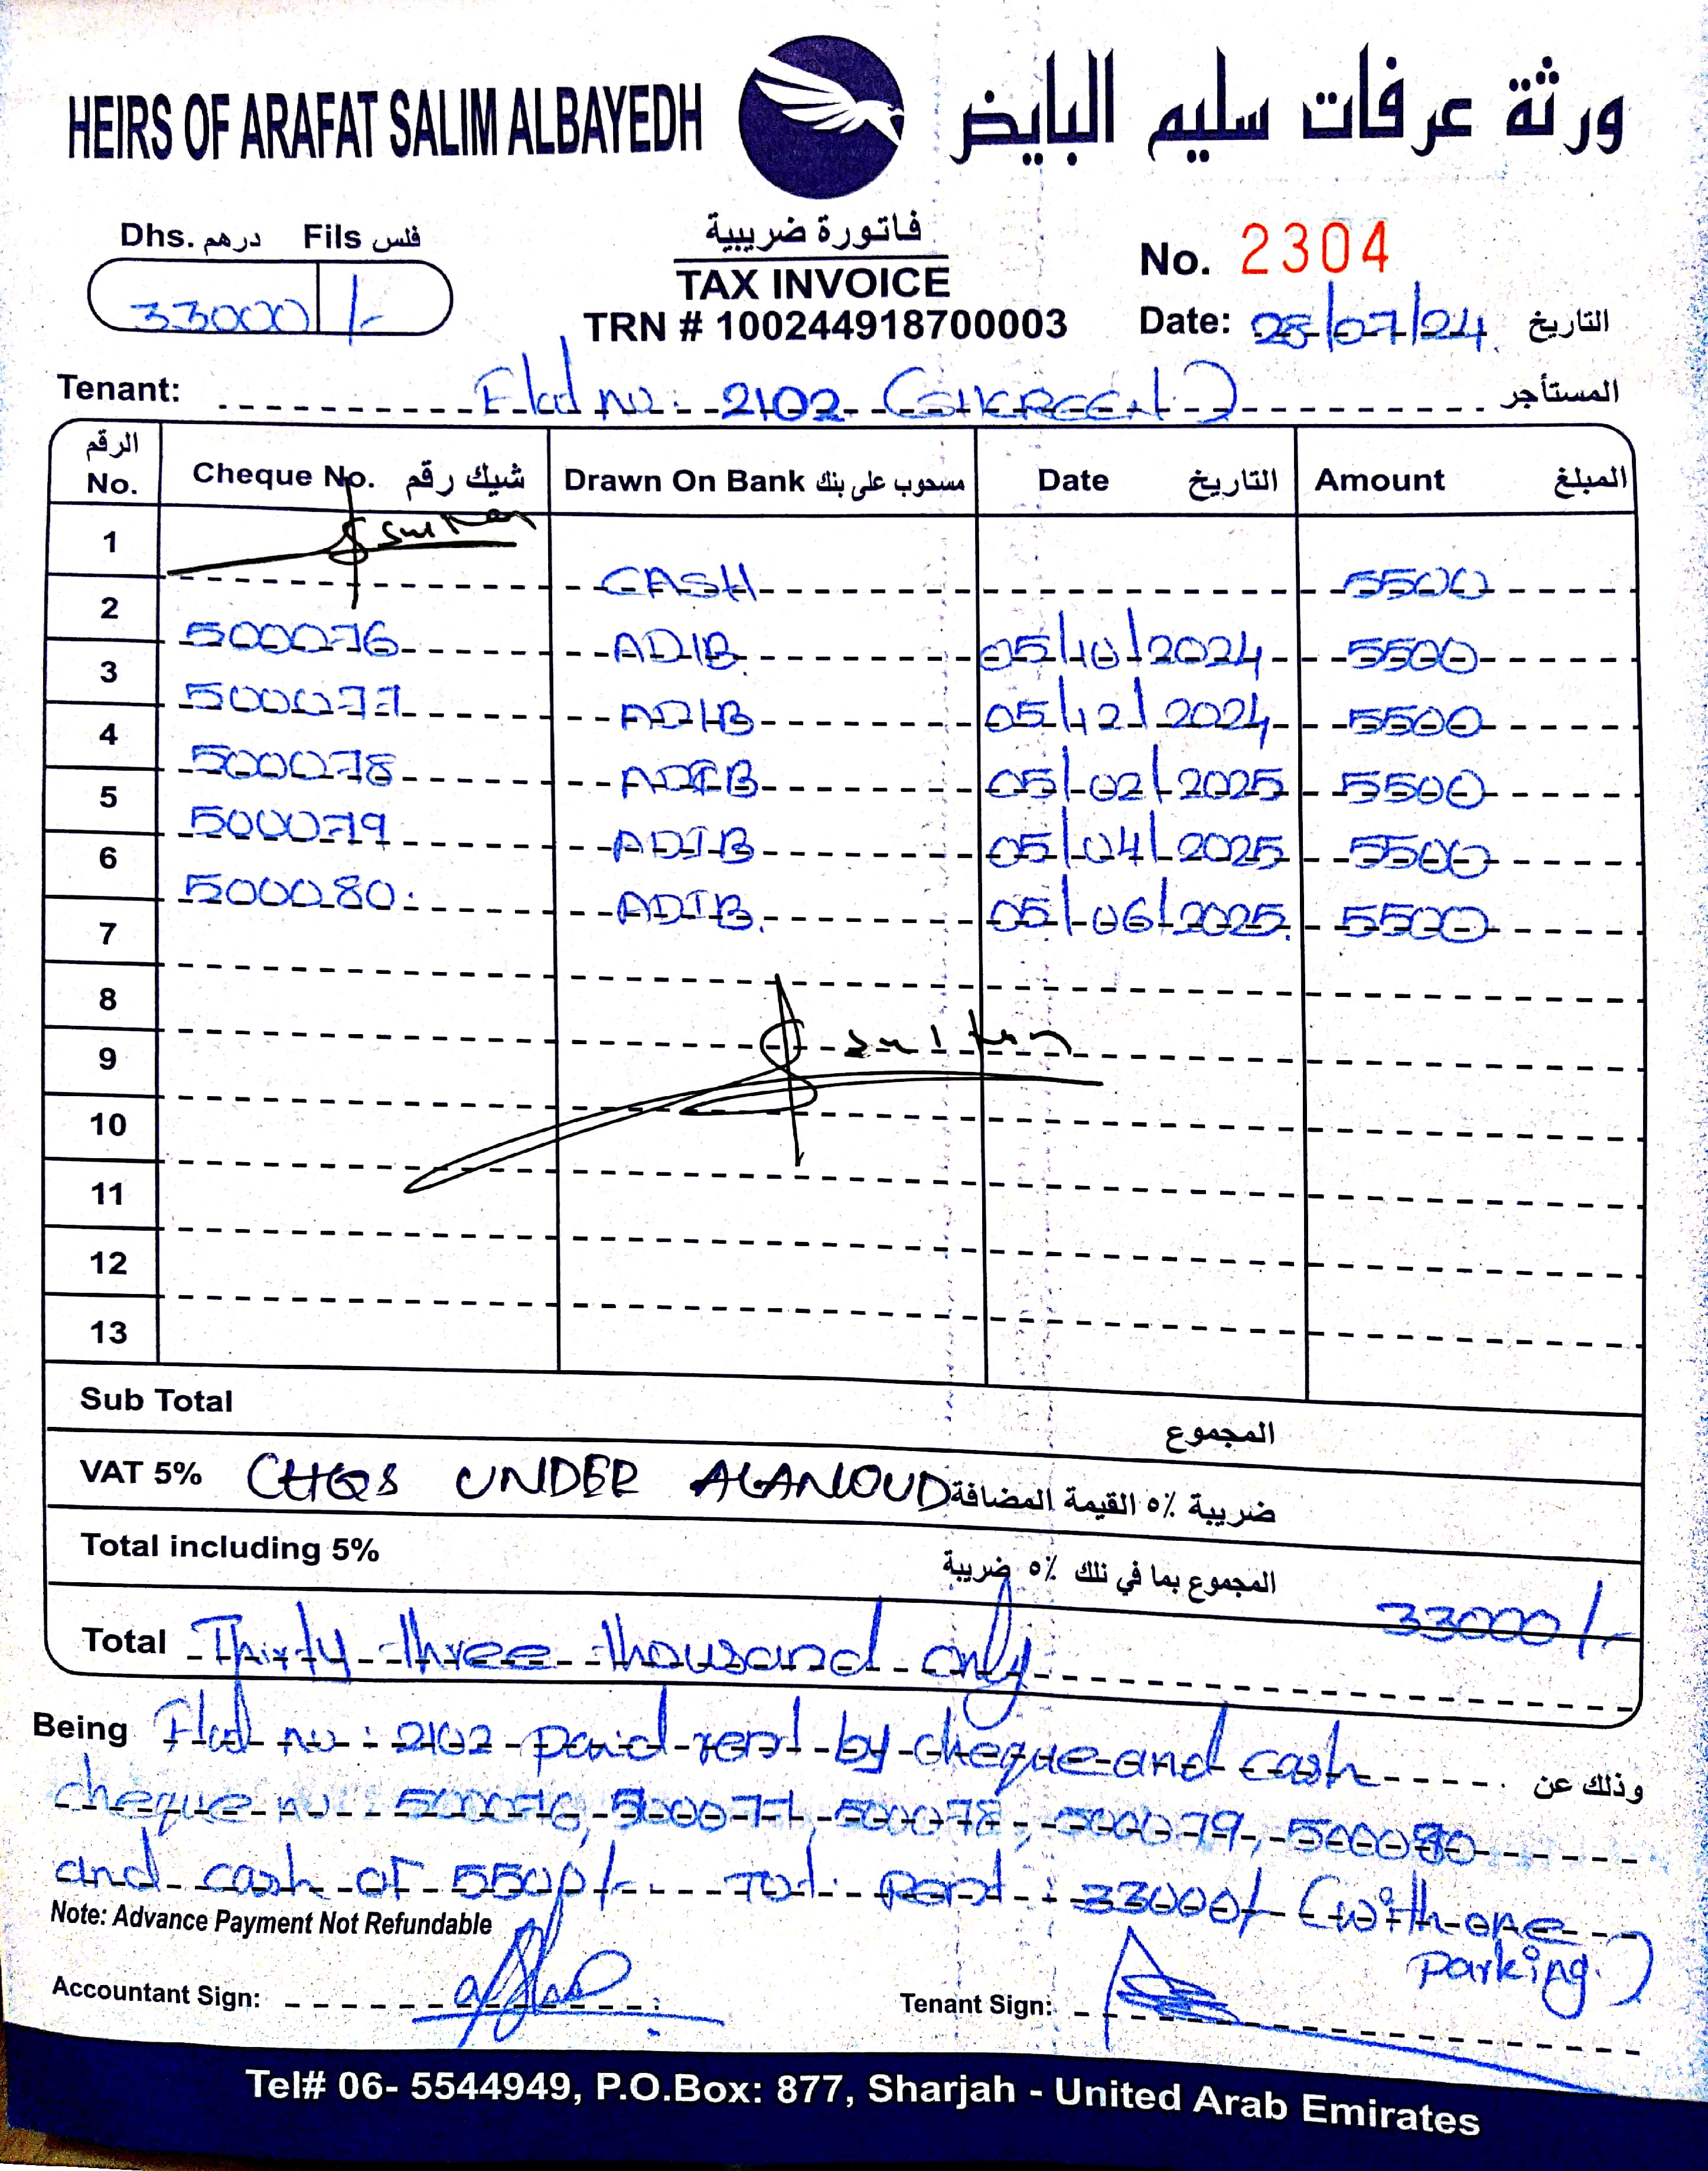 HEIRS OF ARAFAT SALIM ALBAYEDH ورثة عرفات سليم البايض
Dhs. درهم Fils فلس
33000 /-
فاتورة ضريبية
TAX INVOICE
TRN # 100244918700003
No. 2304
Date: 25/07/24 التاريخ
Tenant: Flat no: 2102 المستأجر
الرقم No. Cheque No. شيك رقم Drawn On Bank مسحوب على بنك Date التاريخ Amount المبلغ
1 Sultan CASH 5500
2 500076 ADIB 05/10/2024 5500
3 500077 ADIB 05/12/2024 5500
4 500078 ADIB 05/02/2025 5500
5 500079 ADIB 05/04/2025 5500
6 500080 ADIB. 05/06/2025. 5500
7
8
9 Sultan
10
11
12
13
Sub Total المجموع
VAT 5% CHQS UNDER ALANOUD ضريبة ٥٪ القيمة المضافة
Total including 5% المجموع بما في ذلك ٥٪ ضريبة 33000/-
Total Thirty three thousand only
Being Flat no: 2102 paid rent by cheque and cash وذلك عن
cheque no: 500076, 500077, 500078, 500079, 500080
and cash of 5500/- Tot. Rent: 33000/- (with one
parking.)
Note: Advance Payment Not Refundable
Accountant Sign: Tenant Sign:
Tel# 06- 5544949, P.O.Box: 877, Sharjah - United Arab Emirates